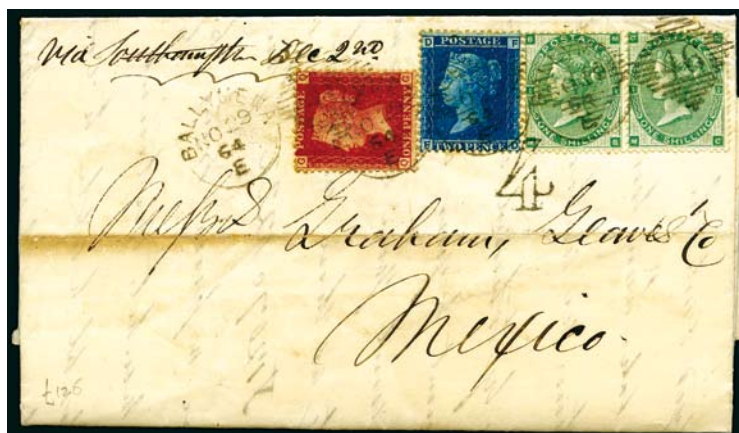 via Southampton Dec 2nd
BALLYM
NO 29
64
E
POSTAGE
ONE PENNY
POSTAGE
TWO PENCE
POSTAGE
ONE SHILLING
POSTAGE
ONE SHILLING
16
4
Messrs Graham, Geaves & Co
Mexico.
£126